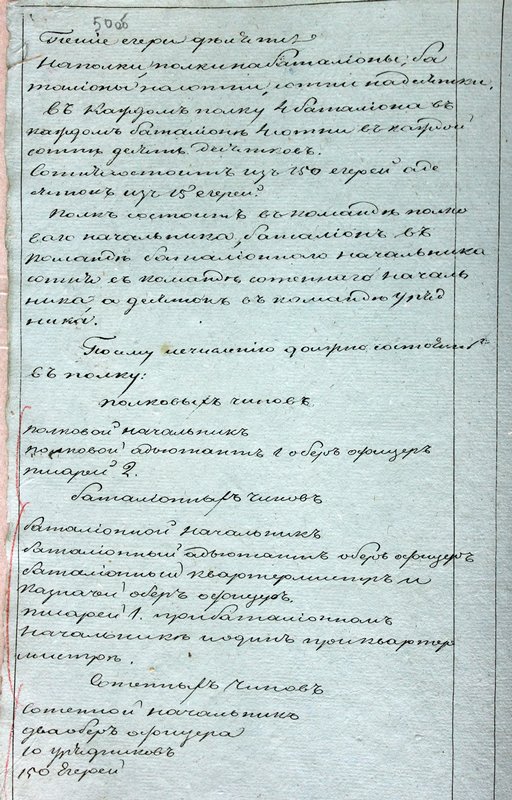 5000
Пешіе егери дѣлятся
на полки, полки на баталіоны, ба
таліоны на сотни, сотни на десятки.
въ каждомъ полку 4 баталіона въ
каждомъ баталіонѣ 4 сотни въ каждой
сотнѣ десять десятковъ.
Сотня состоитъ изъ 150 егерей а де
сятокъ изъ 15 егерей.
Полкъ состоитъ въ командѣ полко
ваго начальника, баталіонъ въ
командѣ баталіоннаго начальника
сотня въ командѣ сотеннаго началь
ника а десятокъ въ командѣ уряд
ника.
По сему исчисленію должно состоять
въ полку:
полковыхъ чиновъ
полковой начальникъ
полковой адъютантъ 1 оберъ офицеръ
писарей 2.
баталіонныхъ чиновъ
баталіонной начальникъ
баталіонный адъютантъ оберъ офицеръ
баталіонный квартермистръ и
казначей оберъ офицеръ.
писарей 1. при баталіонномъ
начальникѣ и одинъ при квартер
мистрѣ.
Сотенныхъ чиновъ
сотенной начальникъ
два оберъ офицера
10 урядниковъ
150 Егерей